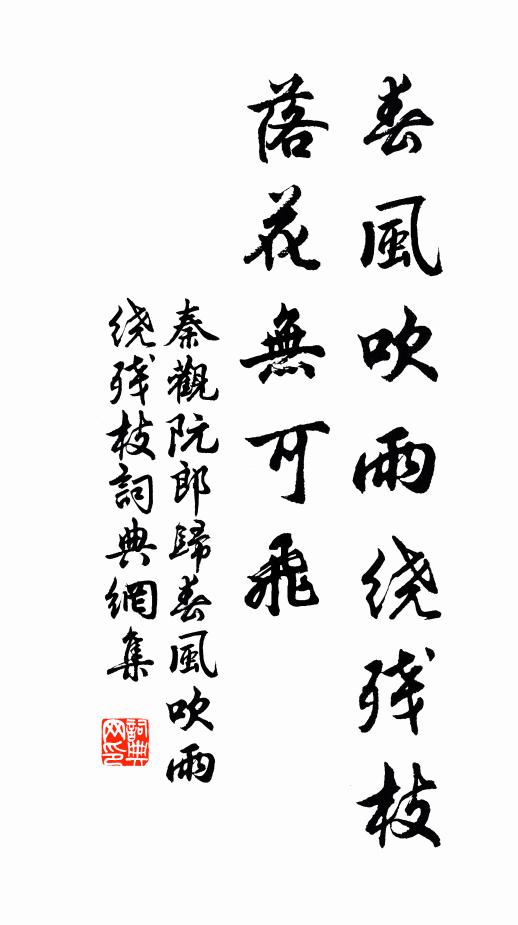 春風吹雨绕残枝
落花無可飛
秦觀阮郎歸春風吹雨
绕残枝詞典網集
詞典
网印